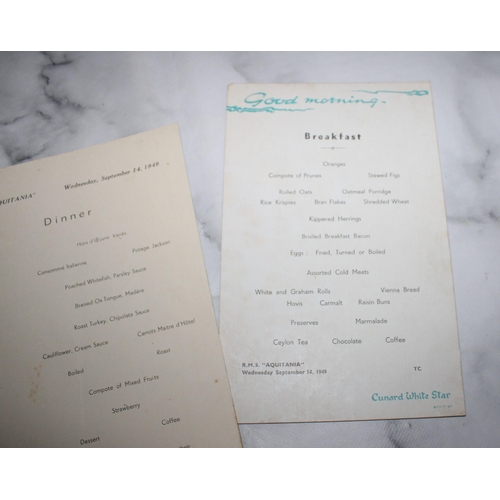 AQUITANIA" Wednesday, September 14, 1949
Dinner
Hors d'Œuvre, Variés
Consommé Italienne Potage Jackson
Poached Whitefish, Parsley Sauce
Braised Ox Tongue, Madère
Roast Turkey, Chipolata Sauce
Cauliflower, Cream Sauce Carrots Maitre d'Hôtel
Boiled Roast
Compote of Mixed Fruits
Strawberry
Coffee
Dessert
Good morning.
Breakfast
Oranges
Compote of Prunes Stewed Figs
Rolled Oats Oatmeal Porridge
Rice Krispies Bran Flakes Shredded Wheat
Kippered Herrings
Broiled Breakfast Bacon
Eggs: Fried, Turned or Boiled
Assorted Cold Meats
White and Graham Rolls Vienna Bread
Hovis Carmalt Raisin Buns
Preserves Marmalade
Ceylon Tea Chocolate Coffee
R.M.S. "AQUITANIA"
Wednesday September 14, 1949 TC
Cunard White Star